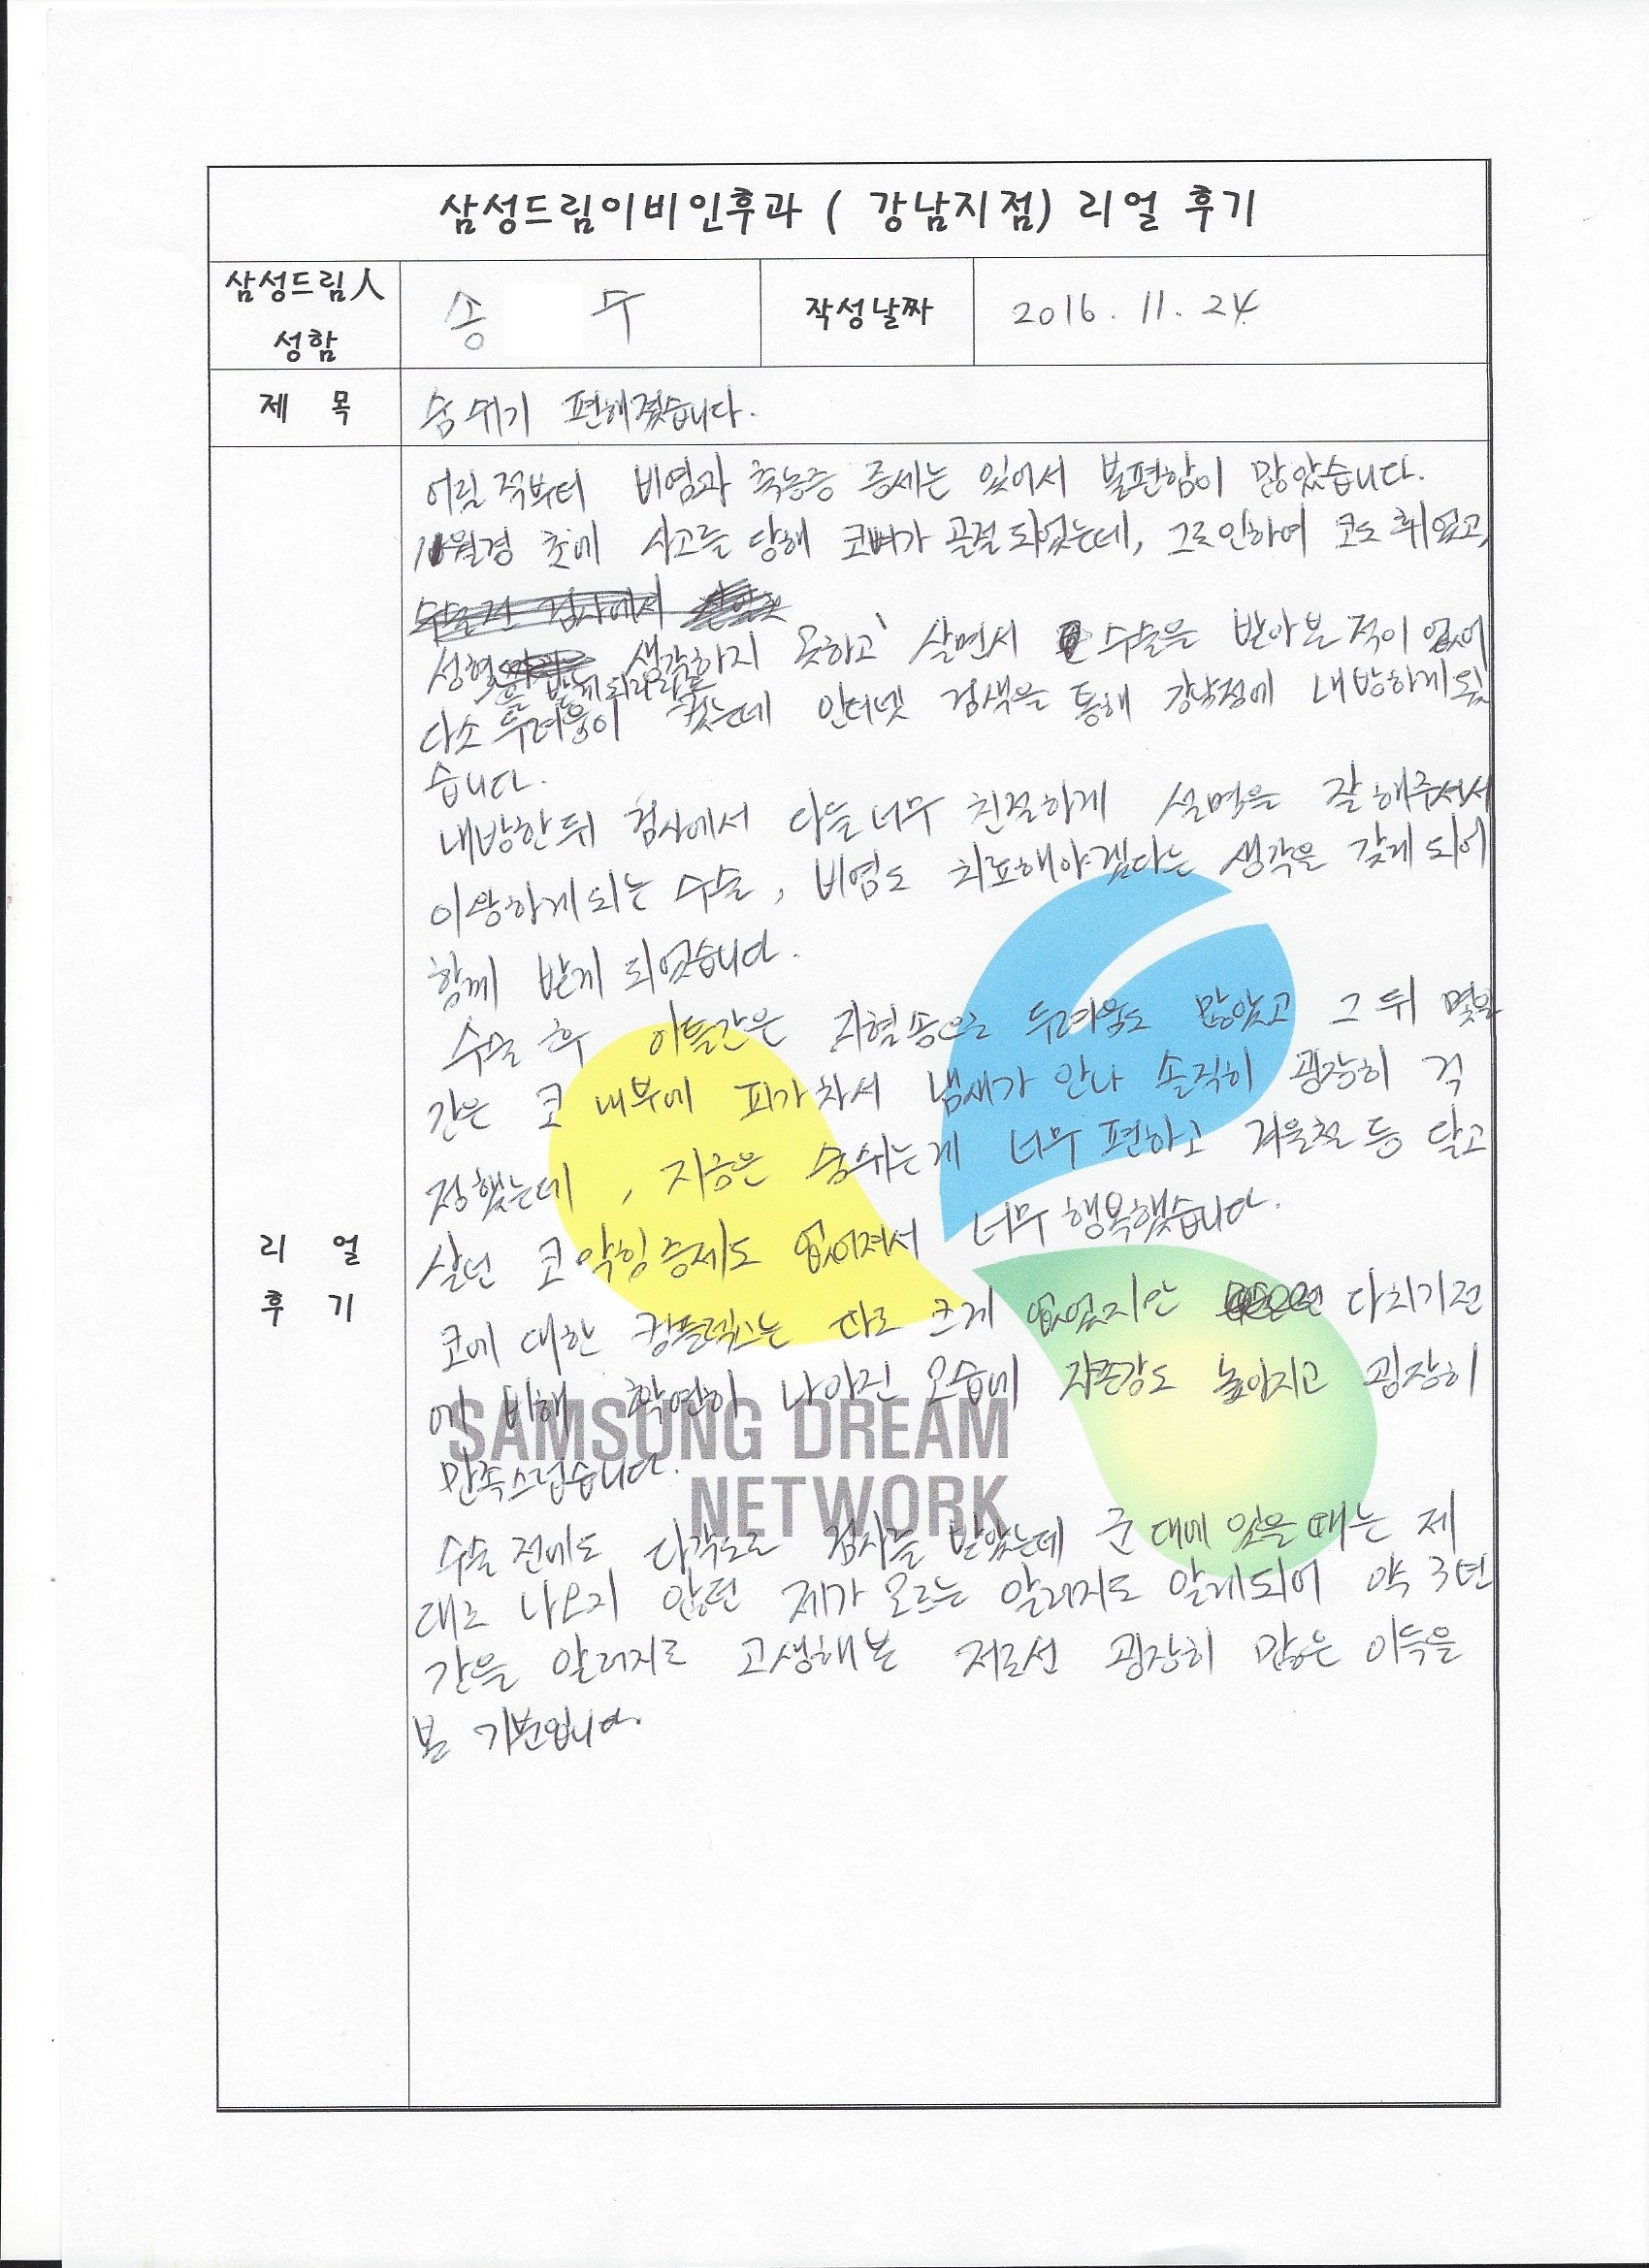 삼성드림이비인후과 ( 강남지점) 리얼 후기
삼성드림人
성함
송 수
작성날짜
2016. 11. 24.
제 목
숨쉬기 편해졌습니다.
리 얼
후 기
어릴 적부터 비염과 축농증 증세는 있어서 불편함이 많았습니다.
월경 초에 사고를 당해 코뼈가 골절되었는데, 그로인하여 코도 휘었고,
성형 생각하지 못하고 살면서 수술을 받아본 적이 없어
을 받게 되리라곤
다소 두려움이 컸는데 인터넷 검색을 통해 강남점에 내방하게되었
습니다.
내방한 뒤 검사에서 다들 너무 친절하게 설명을 잘 해주셔서
이왕하게되는 수술, 비염도 치료해야겠다는 생각을 갖게 되어
함께 받게 되었습니다.
수술 후 이틀간은 두려움도 많았고 그 뒤 몇일
간은 코 내부에 피가 차서 냄새가 안나 솔직히 굉장히 걱
정했는데, 지금은 숨쉬는게 너무 편하고 겨울철 등 달고
살던 코막힘증세도 없어져서 너무 행복했습니다.
코에 대한 컴플렉스는 따로 크게 없었지만 다치기전
에 비해 확연히 나아진 모습에 자존감도 높아지고 굉장히
만족스럽습니다.
수술 전에도 다각도로 검사를 받았는데 군대에 있을 때는 제
대로 나오지 않던 제가 모르는 알러지도 알게되어 약 3년
간을 알러지로 고생해본 저로선 굉장히 많은 이득을
본 기분입니다.
SAMSUNG DREAM
NETWORK